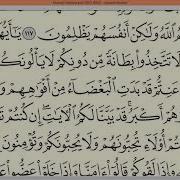 ٱللَّهُ وَلَٰكِنْ أَنفُسَهُمْ يَظْلِمُونَ ١١٧ يَٰٓأَيُّهَا
لَا تَتَّخِذُوا۟ بِطَانَةً مِّن دُونِكُمْ لَا يَأْلُونَكُمْ
عَنِتُّمْ قَدْ بَدَتِ ٱلْبَغْضَآءُ مِنْ أَفْوَٰهِهِمْ وَ
هُمْ أَكْبَرُ قَدْ بَيَّنَّا لَكُمُ ٱلْءَايَٰتِ إِن كُنتُمْ
تُمْ أُو۟لَآءِ تُحِبُّونَهُمْ وَلَا يُحِبُّونَكُمْ وَتُؤْمِنُونَ
وَإِذَا لَقُوكُمْ قَالُوٓا۟ ءَامَنَّا وَإِذَا خَلَوْا۟ عَضُّوا۟ عَ